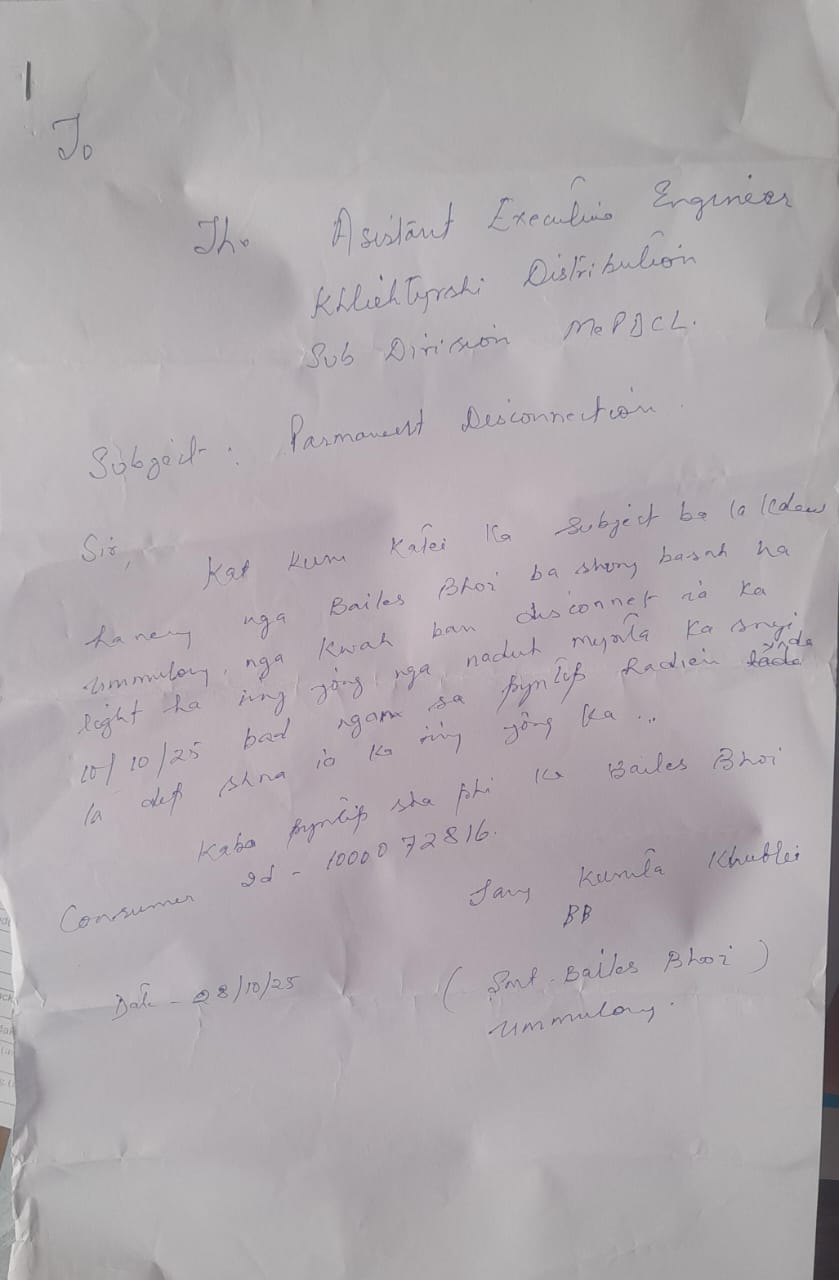 To
The Asistant Executive Engineer
Khliehtyrshi Distribution
Sub Division MePDCL.
Subject : Parmanent Disconnection.
Sir,
Kat kum katei ka subject ba la kdew
haneng nga Bailes Bhoi ba shong basah ha
Ummulong, nga kwah ban disconnet ia ka
light ha iing jong nga naduh mynta ka sngi
10/10/25 bad ngam sa pynlip hadien
la dep shna ia ka iing jong ka ...
Kaba pynlip sha phi ka Bailes Bhoi
Consumer Id - 1000072816.
Jang kumta Khublei
BB
Date - 28/10/25
(Smt. Bailes Bhoi)
Ummulong.